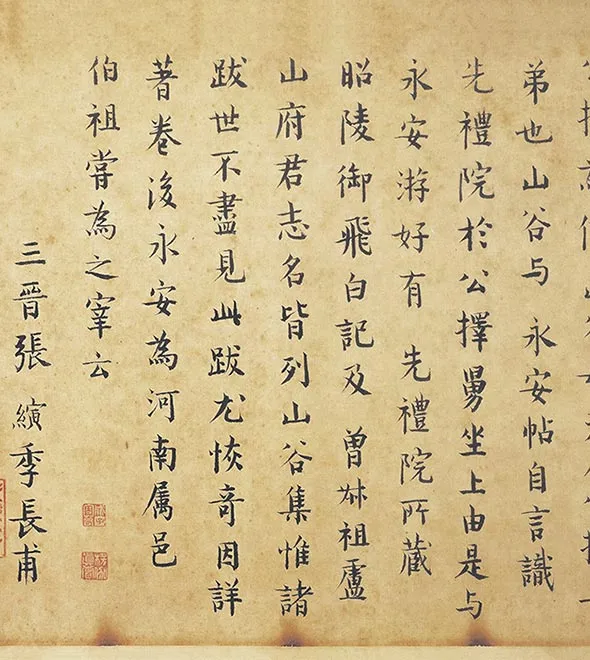 弟也山谷与 永安帖自言識
先禮院於公擇舅坐上由是与
永安游好有 先禮院所藏
昭陵御飛白記及 曾叔祖盧
山府君志名皆列山谷集惟諸
跋世不盡見此跋尤恢奇因詳
著卷後永安為河南属邑
伯祖嘗為之宰云
三晉張縯季長甫